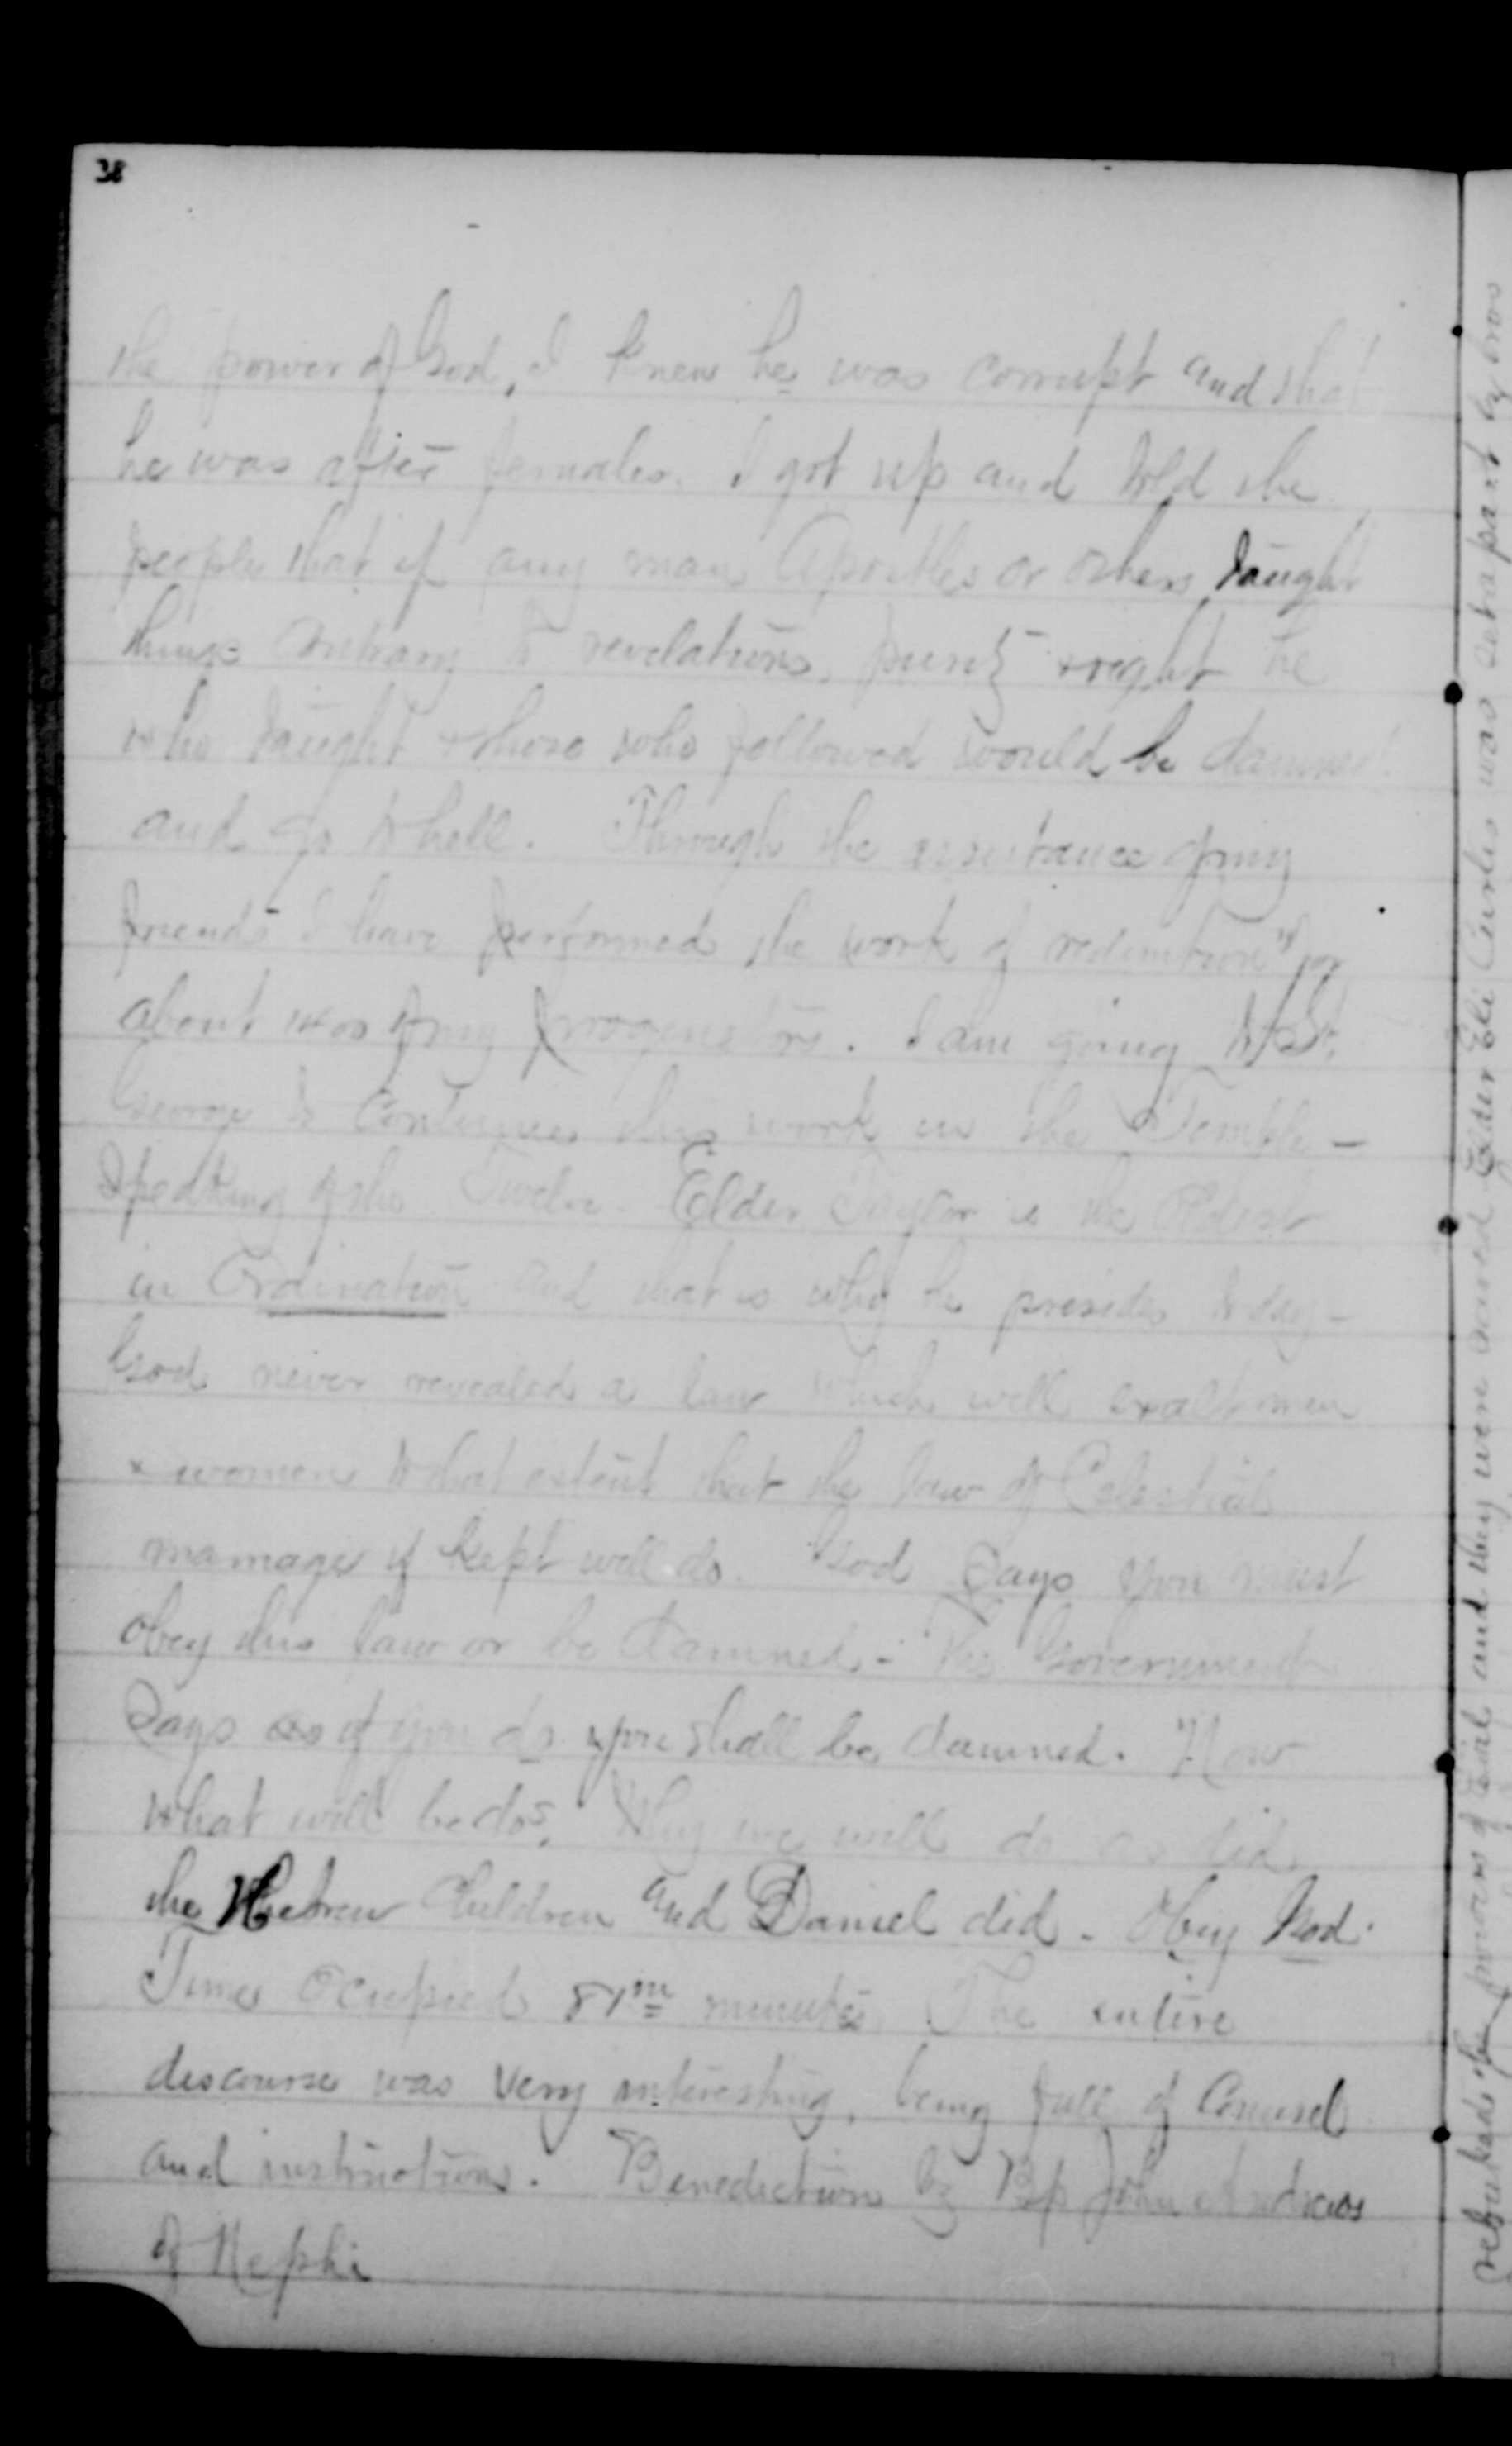 38
the power of God, I knew he was corrupt and that
he was after females. I got up and told the
people that if any man Apostles or others taught
things contrary to revelations, purity & right he
who taught & those who followed would be damned
and go to hell. Through the assistance of my
friends I have performed the work of redemtion for
about of my progenitors. I am going to St.
George to continue this work in the Temple —
Speaking of the Twelve. Elder Taylor is the Oldest
in Ordination and that is why he presides today —
God never revealed a law which will exalt men
& women to that extent that the law of Celestial
marriage if kept will do. God says you must
obey this law or be damned. – The Government
Says if you do you shall be damned. Now
what will be do? Why we will do as did
the Hebrew Children and Daniel did. Obey God.
Time Occupied 81m minutes The entire
discourse was very interesting, being full of Counsel
and instructions. Benediction by Bp John Andrews
of Nephi
rebuked the powers of evil and they were saved Elder Eli Curtis was set apart by bro